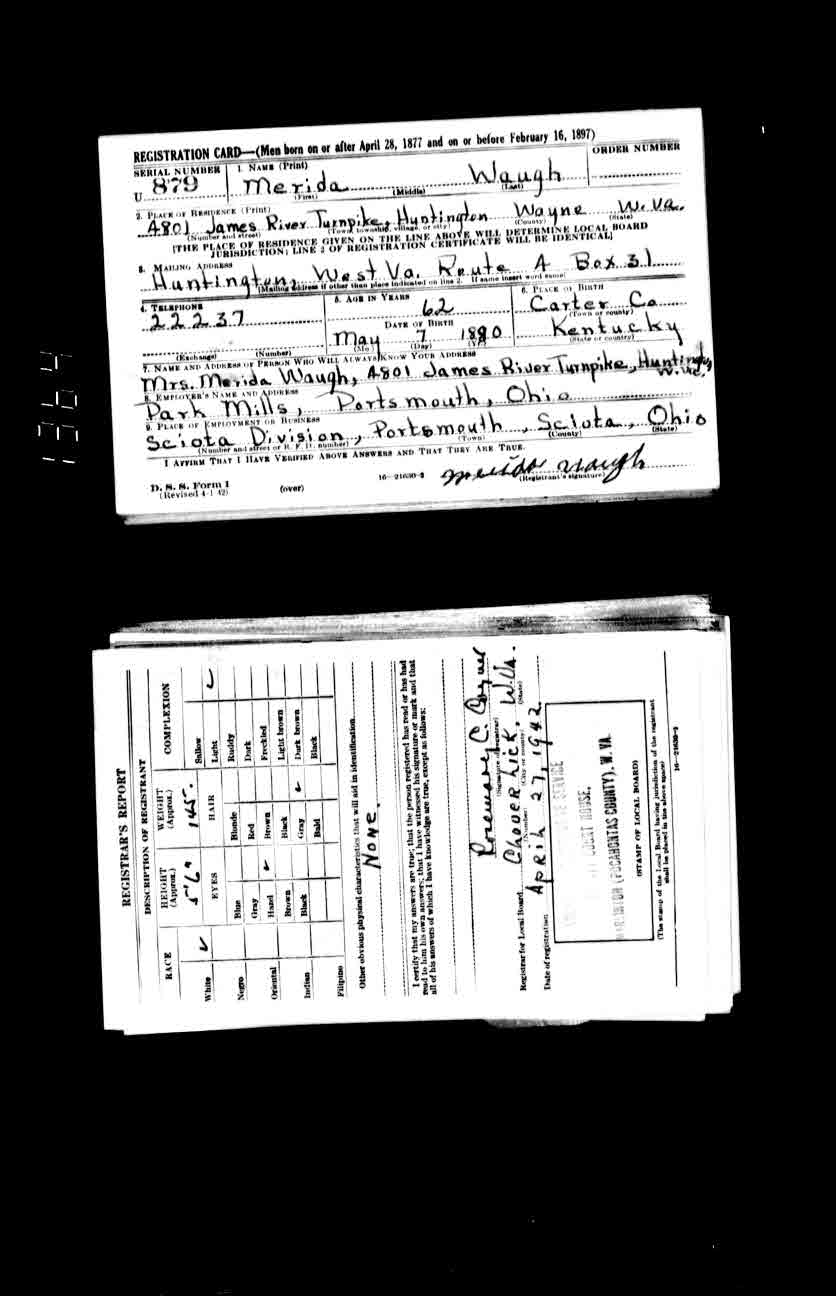 REGISTRATION CARD—(Men born on or after April 28, 1877 and on or before February 16, 1897)
SERIAL NUMBER 1. NAME (Print) ORDER NUMBER
U 879 Merida Waugh
(First) (Middle) (Last)
2. PLACE OF RESIDENCE (Print)
4801 James River Turnpike, Huntington Wayne W. Va.
(Number and street) (Town, township, village, or city) (County) (State)
[THE PLACE OF RESIDENCE GIVEN ON THE LINE ABOVE WILL DETERMINE LOCAL BOARD
JURISDICTION; LINE 2 OF REGISTRATION CERTIFICATE WILL BE IDENTICAL]
3. MAILING ADDRESS
Huntington, West Va. Route 4 Box 31
[Mailing address if other than place indicated on line 2. If same insert word same]
4. TELEPHONE 5. AGE IN YEARS 6. PLACE OF BIRTH
22237 62 Carter Co.
(Town or county)
DATE OF BIRTH
May 7 1880 Kentucky
(Exchange) (Number) (Mo.) (Day) (Yr.) (State or country)
7. NAME AND ADDRESS OF PERSON WHO WILL ALWAYS KNOW YOUR ADDRESS
Mrs. Merida Waugh, 4801 James River Turnpike, Huntington
W. Va.
8. EMPLOYER'S NAME AND ADDRESS
Park Mills, Portsmouth, Ohio
9. PLACE OF EMPLOYMENT OR BUSINESS
Sciota Division, Portsmouth, Sciota, Ohio
(Number and street or R. F. D. number) (Town) (County) (State)
I AFFIRM THAT I HAVE VERIFIED ABOVE ANSWERS AND THAT THEY ARE TRUE.
D. S. S. Form 1
(Revised 4-1-42) (over) 16—21630-2 Merida Waugh
(Registrant's signature)
1364
REGISTRAR'S REPORT
DESCRIPTION OF REGISTRANT
RACE HEIGHT (Approx.) WEIGHT (Approx.) COMPLEXION
5'6" 145- Sallow
White ✓ EYES HAIR Light ✓
Blue Blonde Ruddy
Negro Gray Red Dark
Oriental Hazel ✓ Brown Freckled
Brown Black Light brown
Indian Black Gray ✓ Dark brown
Bald Black
Filipino
Other obvious physical characteristics that will aid in identification
None.
I certify that my answers are true; that the person registered has read or has had
read to him his own answers; that I have witnessed his signature or mark and that
all of his answers of which I have knowledge are true, except as follows:
Rosemary C.
(Signature of registrar)
Registrar for Local Board Clover Lick, W. Va.
(Number) (City or county) (State)
Date of registration April 27, 1942
SERVICE
COURT HOUSE,
MARLINTON (POCAHONTAS COUNTY), W. VA.
(STAMP OF LOCAL BOARD)
(The stamp of the Local Board having jurisdiction of the registrant
shall be placed in the above space)
16—21630-2